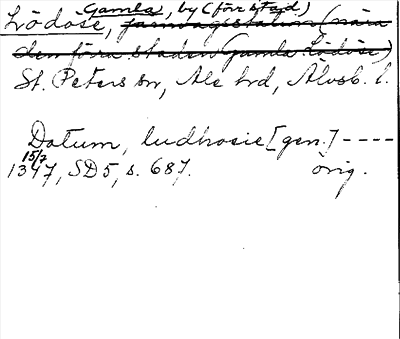 Gamla, by (förr stad)
Lödöse, järnvägsstation (nära
den förra staden Gamla Lödöse)
St. Peters sn, Ale hd, Älvsb. l.
Datum, ludhosie [gen.] ----
15/7
1347, SD5, s. 687. orig.